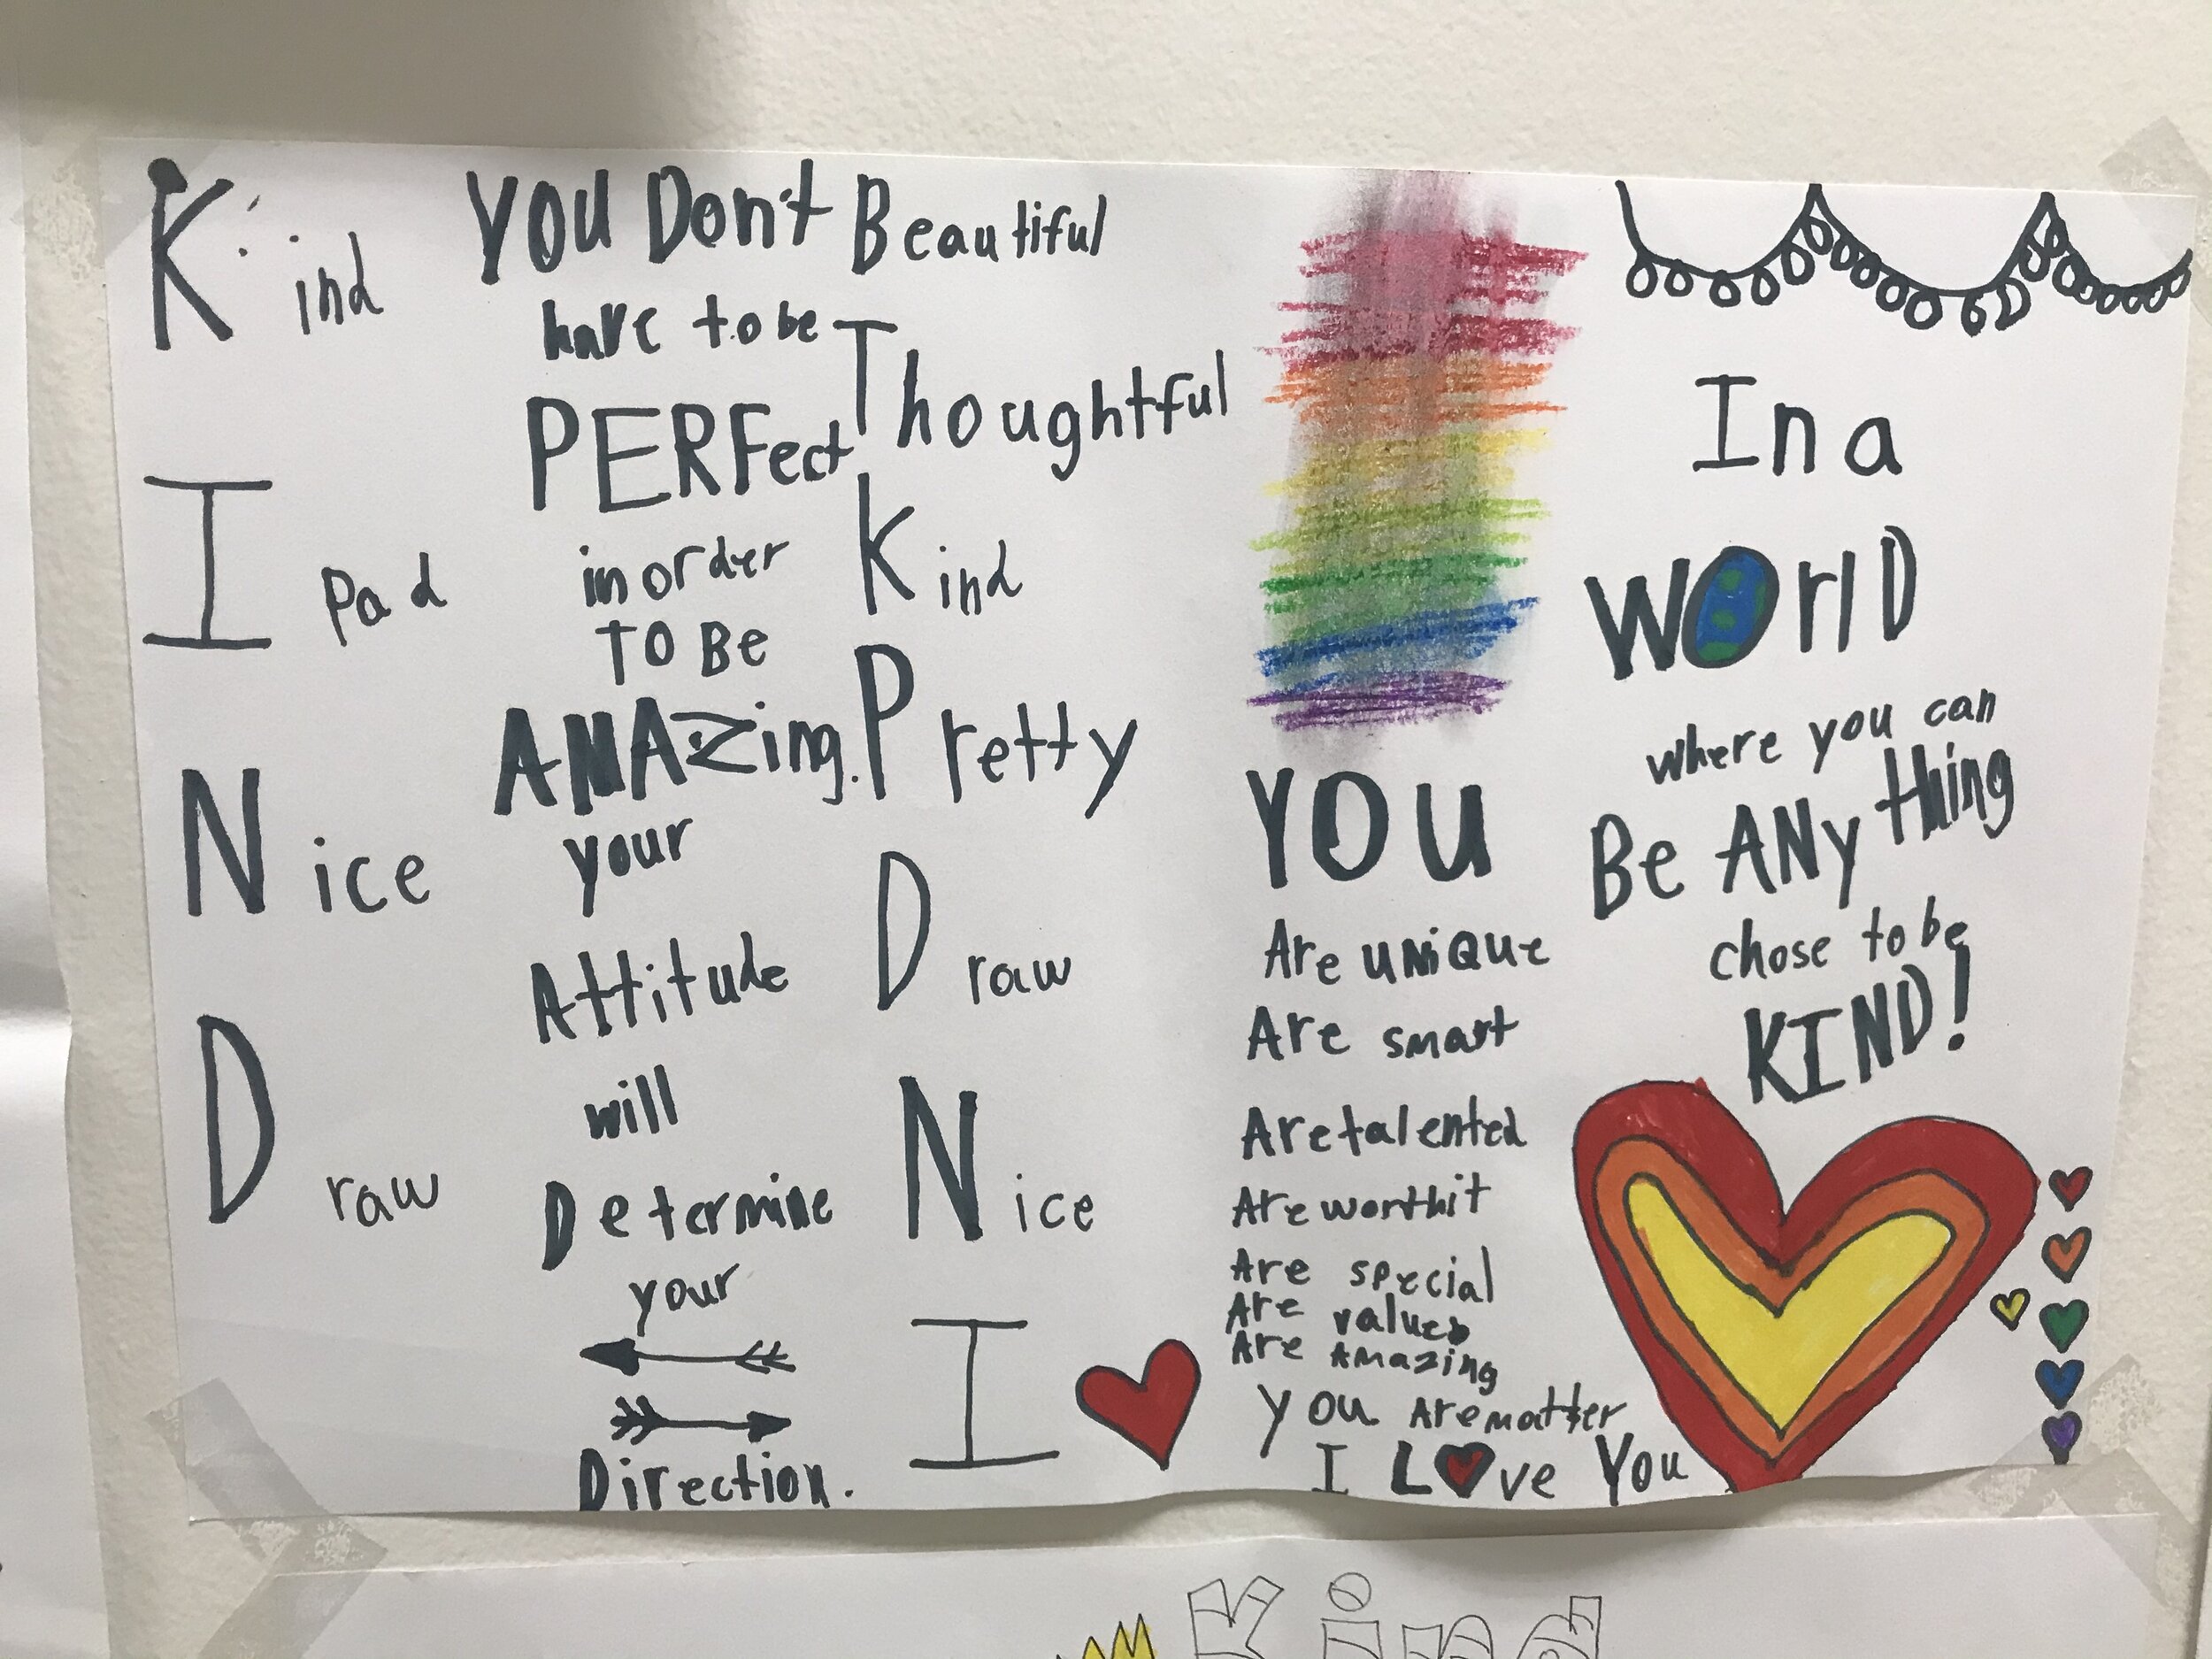 Kind
Ipad
Nice
Draw
You Don't
have to be
PERFect
in order
TO Be
AMAZing.
your
Attitude
will
Determine
your
Direction.
Beautiful
Thoughtful
Kind
Pretty
Draw
Nice
I
YOU
Are uNiQue
Are smart
Are talented
Are worth it
Are special
Are valued
Are Amazing
you Are matter
I Love You
In a
WOrlD
where you can
Be ANy thing
chose to be
KIND!
Kind